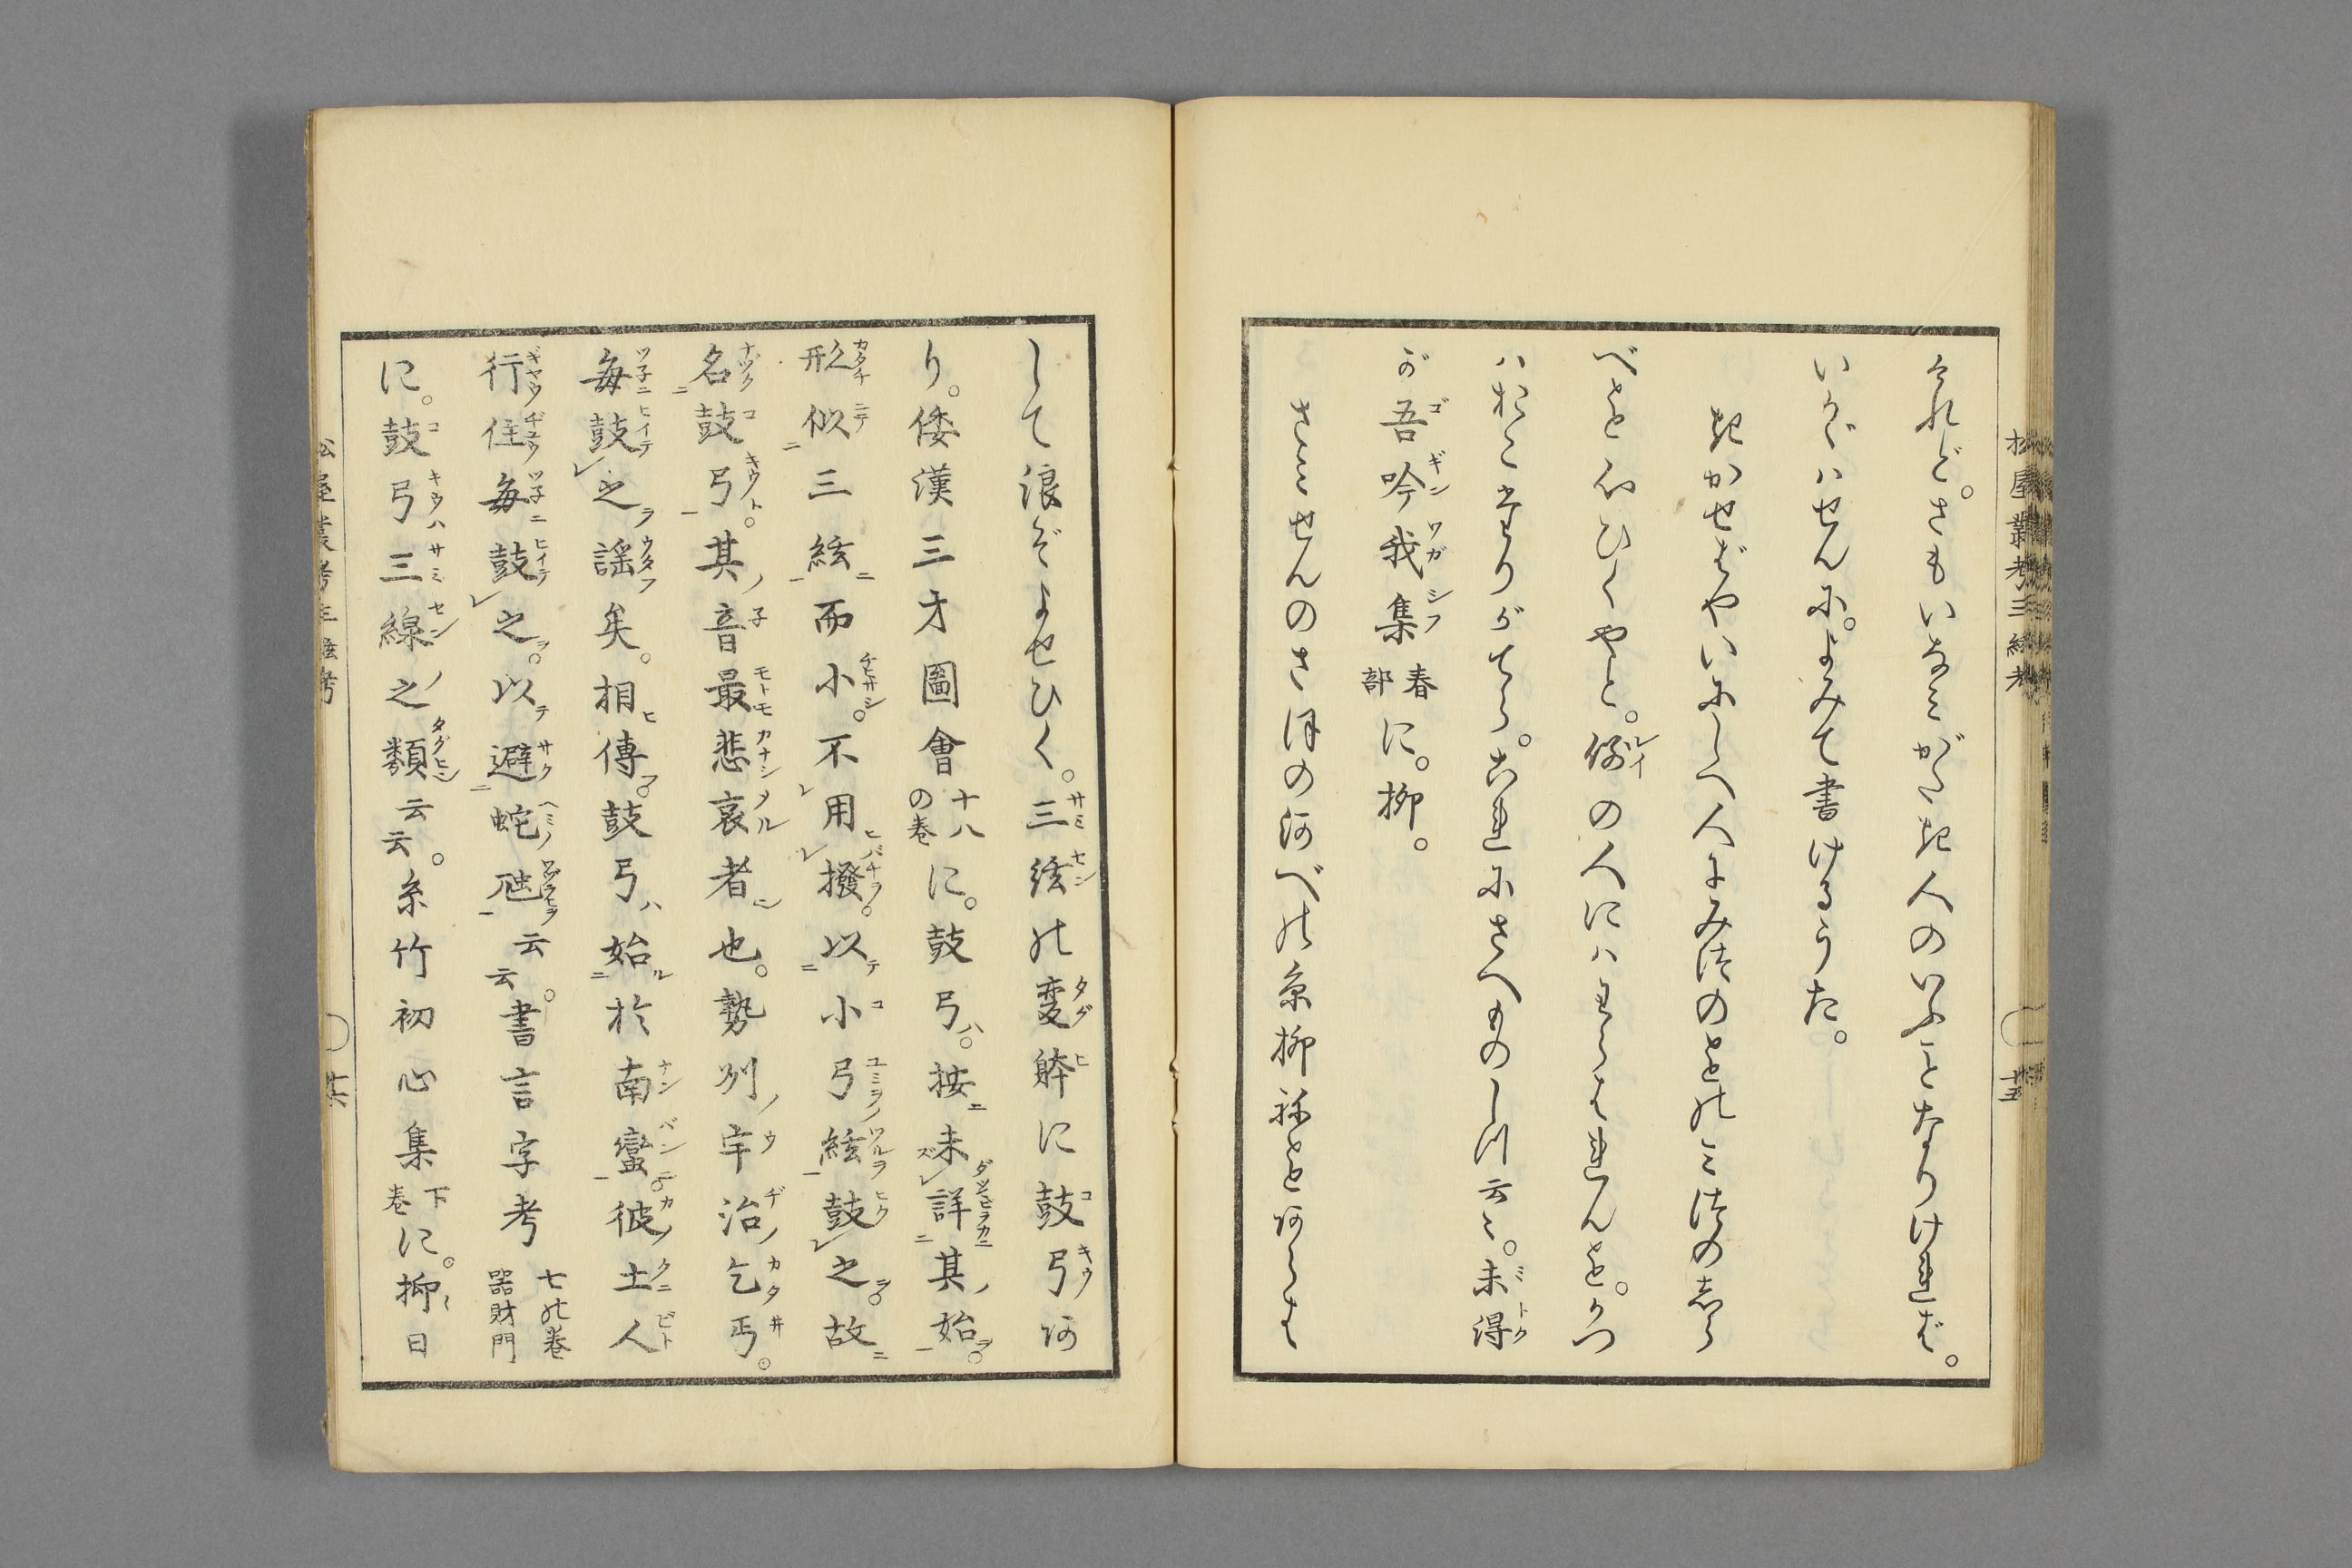 されど。さもいなミがたき人のいふことなりけれバ。
いかゞハせんに。よみて書けるうた。
きかせばやいにしへ人にみつのとの三つの志ら
べを心ひくやと。例の人にハわらはれんを。かつ
ハおこたりがてら。これにさへものしつ云々。未得
が吾吟我集春部に。柳。
さミせんのさほの河べの糸柳ねをあらはは
して浪ぞよせひく。三絃の変躰に鼓弓あ
り。倭漢三才圖會十八の巻に。鼓弓ハ。按未詳其始。
形似三絃而小。不用撥。以小弓絃鼓之故
名鼓弓。其音最悲哀者也。勢州宇治乞丐。
毎鼓之謡矣。相傳。鼓弓ハ始於南蛮。彼土人
行住毎鼓之。以避蛇虺云云。書言字考七の巻器財門
に。鼓弓三線之類云云。糸竹初心集下巻に。抑日
松屋叢考三絃考
十五
松屋叢考三絃考
十六